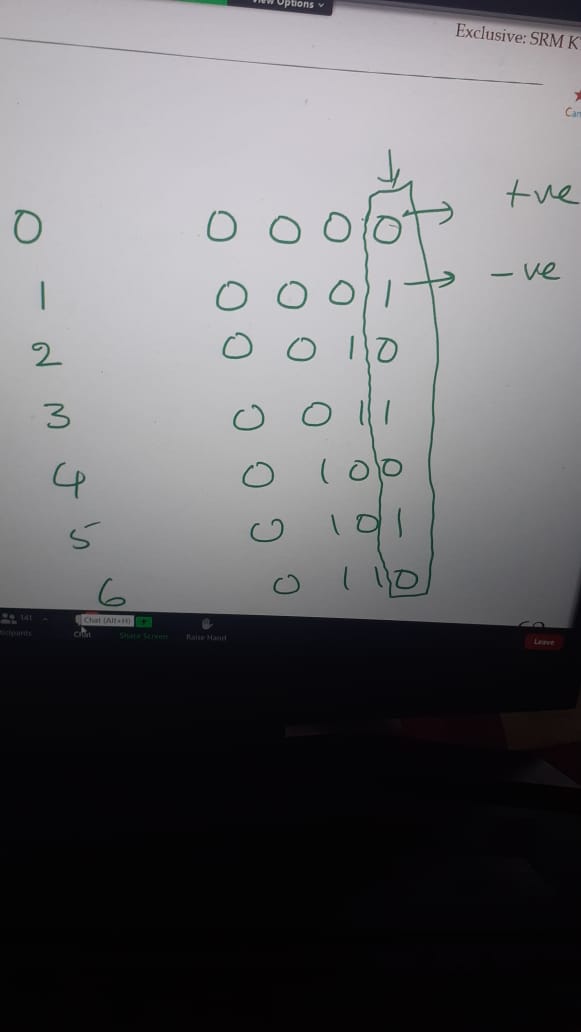 View Options
Exclusive: SRM K
Cam
0 0 0 0 0 → +ve
1 0 0 0 1 → -ve
2 0 0 1 0
3 0 0 1 1
4 0 1 0 0
5 0 1 0 1
6 0 1 1 0
141
Chat (Alt+H)
ticipants Chat Share Screen Raise Hand Leave